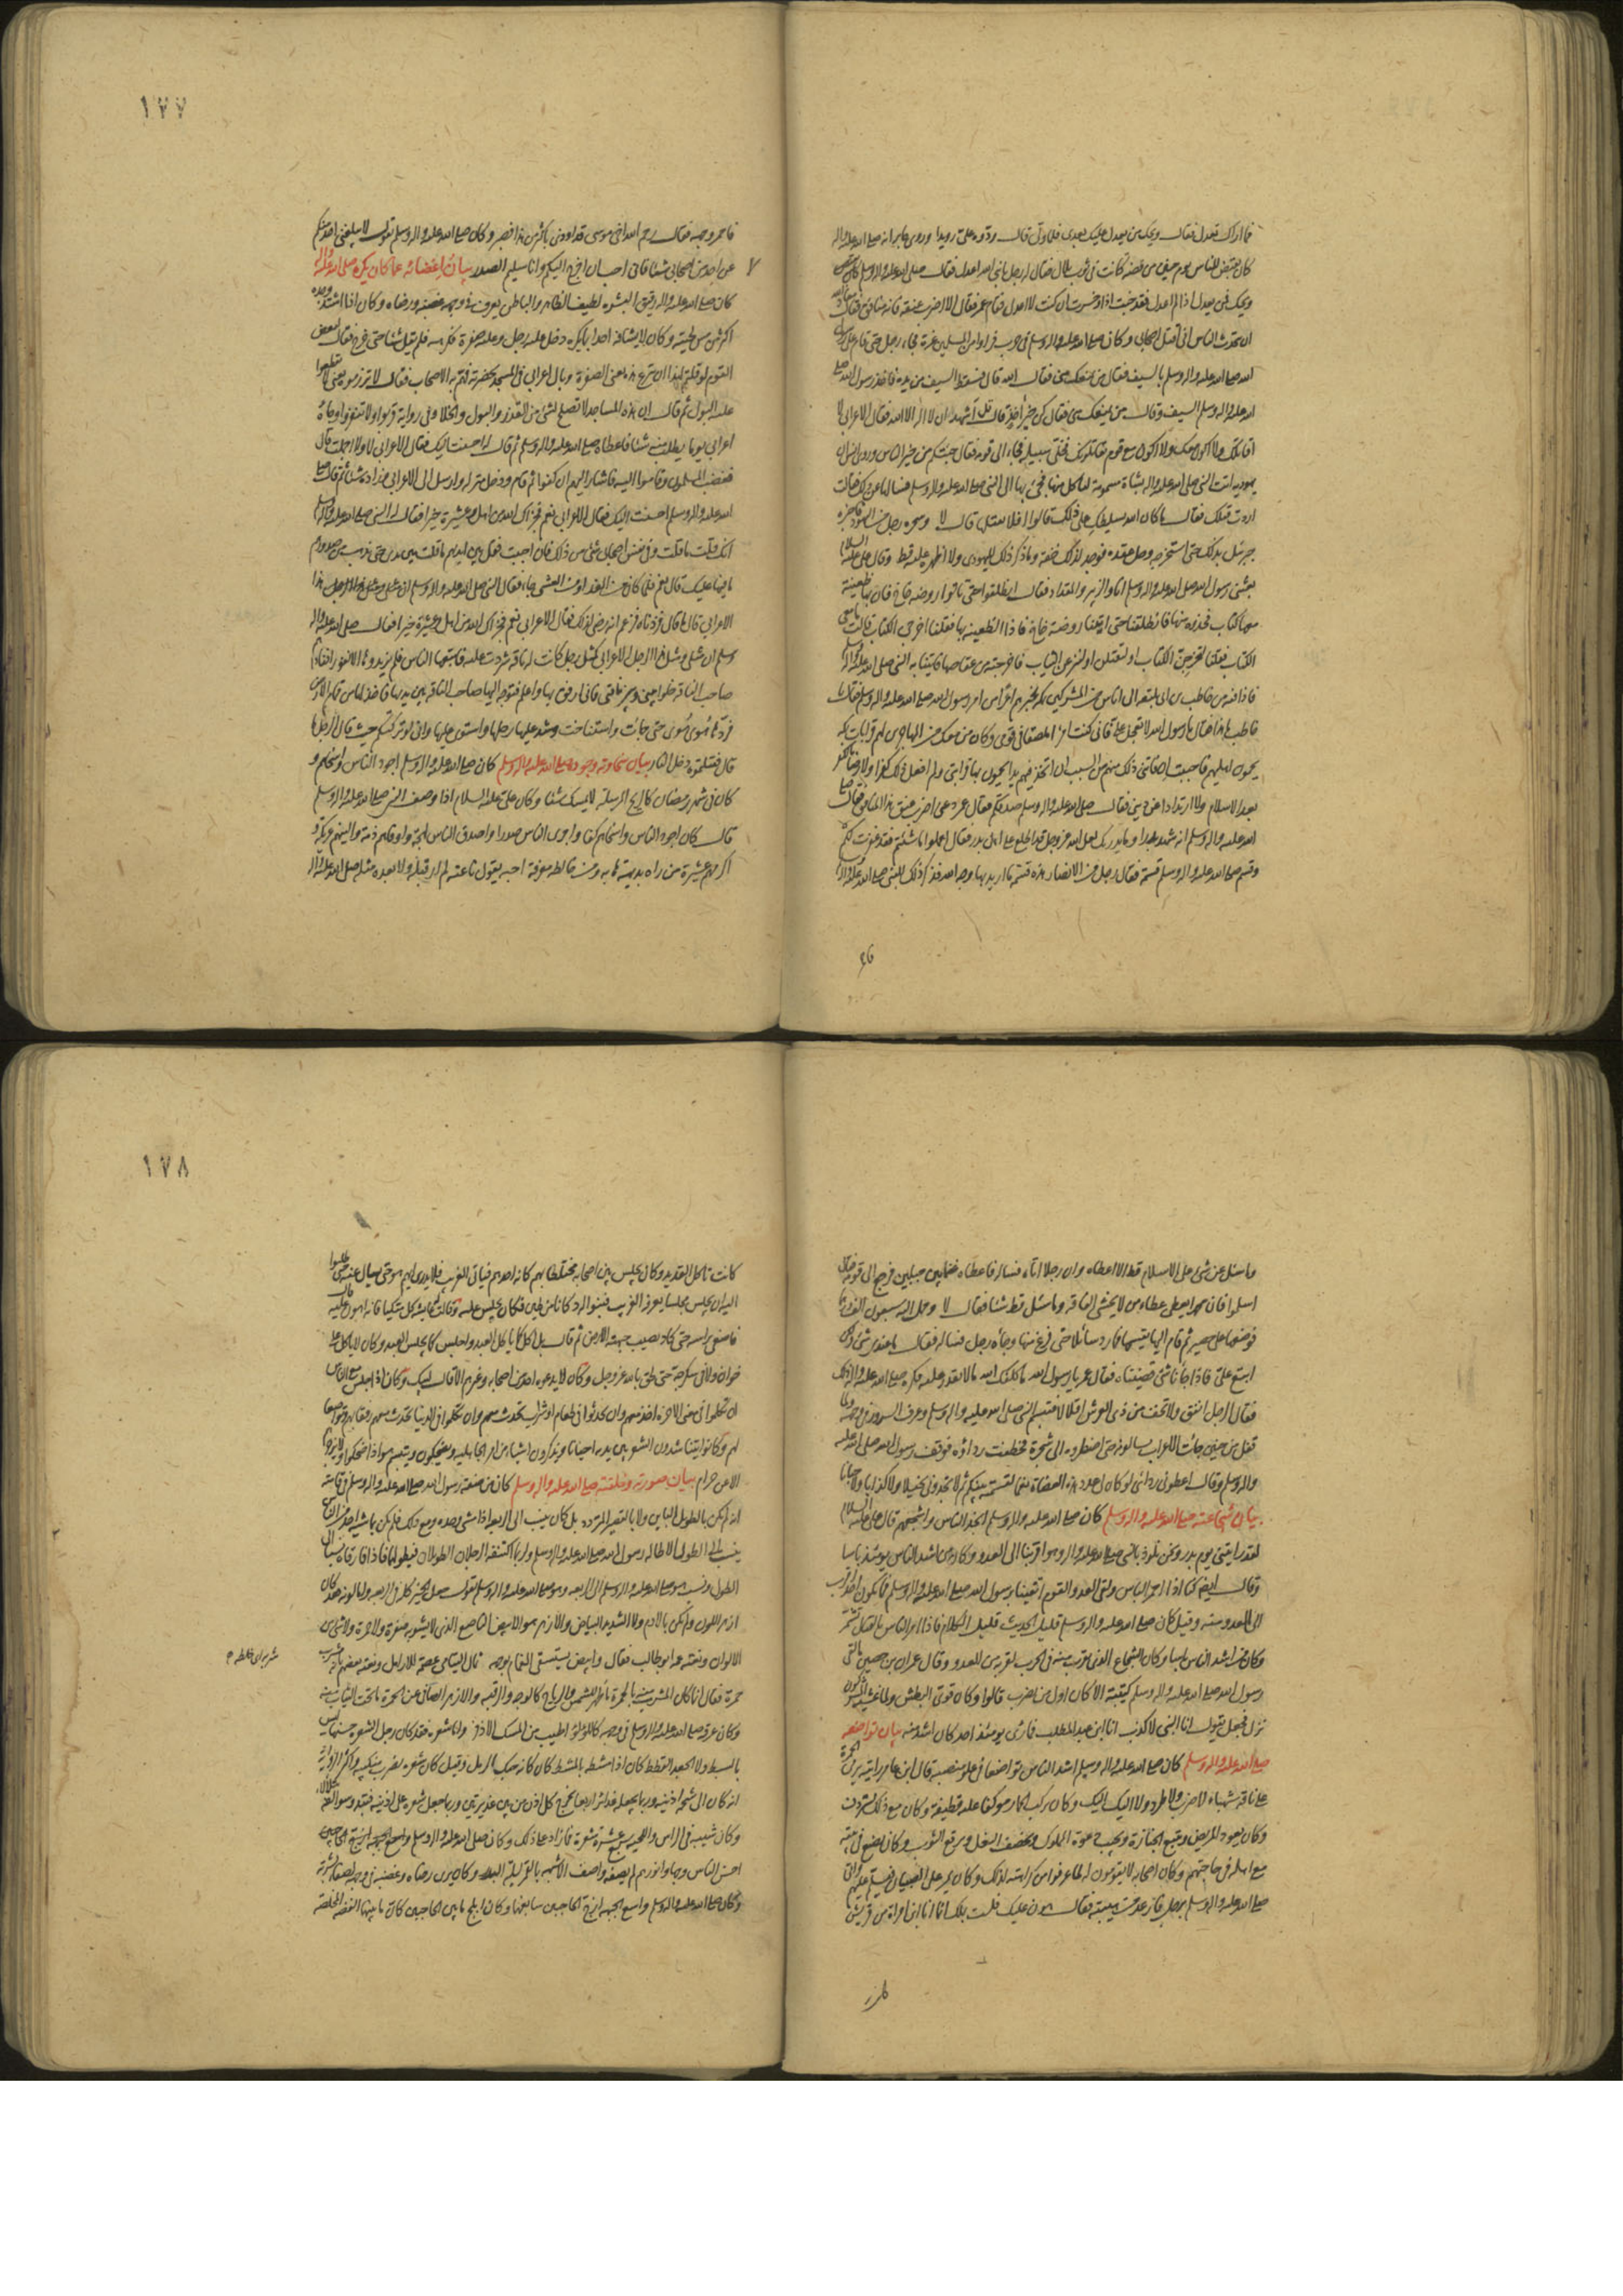 فما اراك تعدل فقال ويحك من يعدل عليك بعدي فلما ولى قال ردّوه عليّ رويدا وروى جابر انه صلى الله عليه واله
كان يقبض للناس يوم حنين من فضة كانت في ثوب بلال فقال له رجل يا نبي الله اعدل فقال صلى الله عليه واله وسلم
ويحك فمن يعدل اذا لم اعدل فقد خبت اذا وخسرت ان كنت لا اعدل فقام عمر فقال الا اضرب عنقه فانه منافق فقال معاذ الله
ان يتحدث الناس اني اقتل اصحابي وكان صلى الله عليه واله وسلم في حرب فراوا من المسلمين غرة فجاء رجل حتى قام على راس رسول
الله صلى الله عليه واله وسلم بالسيف فقال من يمنعك مني فقال الله قال فسقط السيف من يده فاخذ رسول الله صلى
الله عليه واله وسلم السيف وقال من يمنعك مني فقال كن خير اخذ قال قل اشهد ان لا اله الا الله فقال الاعرابي لا
اقاتلك ولا اكون معك ولا اكون مع قوم يقاتلونك فخلى سبيله فجاء الى قومه فقال جئتكم من خير الناس وروى انس ان
يهودية اتت النبي صلى الله عليه واله بشاة مسمومة لياكل منها فجيء بها الى النبي صلى الله عليه واله وسلم فسالها عن ذلك فقالت
اردت قتلك فقال ما كان الله ليسلطك على ذلك قالوا افلا نقتلها قال لا وسحره رجل من اليهود فاخبره
جبرئيل بذلك حتى استخرجه وحل عقده فوجد لذلك خفة وما ذكر ذلك لليهودي ولا اظهره عليه قط وقال علي عليه السلام
بعثني رسول الله صلى الله عليه واله وسلم انا والزبير والمقداد فقال انطلقوا حتى تاتوا روضة خاخ فان بها ظعينة
معها كتاب فخذوه منها فانطلقنا حتى اتينا روضة خاخ فاذا الظعينة بها فقلنا اخرجي الكتاب قالت ما معي
الكتاب فقلنا لتخرجن الكتاب او لتقتلن او لننزعن الثياب فاخرجته من عقاصها فاتينا به النبي صلى الله عليه واله
فاذا فيه من حاطب بن ابي بلتعة الى اناس من المشركين بمكة يخبرهم امرا من امر رسول الله صلى الله عليه واله وسلم فقال يا
حاطب ما هذا فقال يا رسول الله لا تعجل علي فاني كنت امرءا ملصقا في قومي وكان من معك من المهاجرين لهم قرابات بمكة
يحمون اهليهم فاحببت اذ فاتني ذلك منهم من النسب ان اتخذ فيهم يدا يحمون بها قرابتي ولم افعل ذلك كفرا ولا رضا بالكفر
بعد الاسلام ولا ارتدادا عن ديني فقال صلى الله عليه واله وسلم صدقكم فقال عمر دعني اضرب عنق هذا المنافق فقال صلى
الله عليه واله وسلم انه شهد بدرا وما يدريك لعل الله عز وجل قد اطلع على اهل بدر فقال اعملوا ما شئتم فقد غفرت لكم
وقسم صلى الله عليه واله وسلم قسمة فقال رجل من الانصار هذه قسمة ما اريد بها وجه الله فذكر ذلك للنبي صلى الله عليه واله
فاحمر
١٧٧
فاحمر وجهه فقال رحم الله اخي موسى قد اوذي باكثر من هذا فصبر وكان صلى الله عليه واله وسلم يقول لا يبلغني احد منكم
عن احد من اصحابي شيئا فاني احب ان اخرج اليكم وانا سليم الصدر بيان اغضائه عما كان يكره صلى الله عليه واله
كان صلى الله عليه واله رقيق البشرة لطيف الظاهر والباطن يعرف في وجهه غضبه ورضاه وكان اذا اشتد وجده
اكثر من مس لحيته وكان لا يشافه احدا بما يكره دخل عليه رجل وعليه صفرة فكرهه فلم يقل شيئا حتى خرج فقال لبعض
القوم لو قلتم لهذا ان يدع هذه يعني الصفرة وبال اعرابي في المسجد بحضرته فهم به الاصحاب فقال لا تزرموه يعني لا تقطعوا
عليه البول ثم قال ان هذه المساجد لا تصلح لشيء من القذر والبول والخلا وفي رواية قربوا ولا تنفروا وجاءه
اعرابي يوما يطلب منه شيئا فاعطاه صلى الله عليه واله وسلم ثم قال له احسنت اليك فقال الاعرابي لا ولا اجملت قال
فغضب المسلمون وقاموا اليه فاشار اليهم ان كفوا ثم قام ودخل منزله وارسل الى الاعرابي فزاده شيئا ثم قال صلى
الله عليه واله وسلم احسنت اليك فقال الاعرابي نعم فجزاك الله من اهل وعشيرة خيرا فقال له النبي صلى الله عليه واله وسلم
انك قلت ما قلت وفي نفس اصحابي شيء من ذلك فان احببت فقل بين ايديهم ما قلت بين يدي حتى يذهب من صدورهم
ما فيها عليك قال نعم فلما كان من الغد او من العشي جاء فقال النبي صلى الله عليه واله وسلم
الاعرابي قال ما قال فزدناه فزعم انه رضي اكذلك فقال الاعرابي نعم فجزاك الله من اهل وعشيرة خيرا فقال صلى الله عليه واله
وسلم ان مثلي ومثل هذا الرجل الاعرابي كمثل رجل كانت له ناقة شردت عليه فاتبعها الناس فلم يزيدوها الا نفورا فناداهم
صاحب الناقة خلوا بيني وبين ناقتي فاني ارفق بها واعلم فتوجه اليها صاحب الناقة بين يديها فاخذ لها من قمام الارض
فردها هونا هونا حتى جاءت واستناخت وشد عليها رحلها واستوى عليها واني لو تركتكم حيث قال الرجل ما
قال فقتلتموه دخل النار بيان سخاوته وجوده صلى الله عليه واله وسلم كان صلى الله عليه واله وسلم اجود الناس واسخاهم و
كان في شهر رمضان كالريح المرسلة لا يمسك شيئا وكان علي عليه السلام اذا وصف النبي صلى الله عليه واله وسلم
قال كان اجود الناس واسخاهم كفا واجرى الناس صدرا واصدق الناس لهجة واوفاهم ذمة والينهم عريكة و
اكرمهم عشيرة من راه بديهة هابه ومن خالطه معرفة احبه يقول ناعته لم ار قبله ولا بعده مثله صلى الله عليه واله
ما سئل عن شيء على الاسلام قط الا اعطاه وان رجلا اتاه فساله فاعطاه غنما بين جبلين فرجع الى قومه وقال
اسلموا فان محمدا يعطي عطاء من لا يخشى الفاقة وما سئل قط شيئا فقال لا وحمل اليه سبعون الف درهم
فوضعها على حصير ثم قام اليها يقسمها فما رد سائلا حتى فرغ منها وجاءه رجل فساله فقال ما عندي شيء ولكن
ابتع علي فاذا جاءنا شيء قضيناه فقال عمر يا رسول الله ما كلفك الله ما لا تقدر عليه فكره صلى الله عليه واله ذلك
فقال الرجل انفق ولا تخف من ذي العرش اقلالا فتبسم النبي صلى الله عليه واله وسلم وعرف السرور في وجهه ولما
قفل من حنين جاءت الاعراب يسالونه حتى اضطروه الى شجرة فخطفت رداؤه فوقف رسول الله صلى الله عليه
واله وسلم وقال اعطوني ردائي لو كان لي عدد هذه العضاة نعما لقسمته بينكم ثم لا تجدوني بخيلا ولا كذابا ولا جبانا
بيان شجاعته صلى الله عليه واله وسلم كان صلى الله عليه واله وسلم انجد الناس واشجعهم قال علي عليه السلام
لقد رايتني يوم بدر ونحن نلوذ بالنبي صلى الله عليه واله وهو اقربنا الى العدو وكان من اشد الناس يومئذ باسا
وقال ايضا كنا اذا احمر الباس ولقي العدو القوم اتقينا برسول الله صلى الله عليه واله وسلم فما يكون احد اقرب
الى العدو منه وقيل كان صلى الله عليه واله وسلم قليل الحديث قليل الكلام فاذا امر الناس بالقتال تشمر
وكان من اشد الناس باسا وكان الشجاع الذي يقرب منه في الحرب لقربه من العدو وقال عمران بن حصين ما لقي
رسول الله صلى الله عليه واله وسلم كتيبة الا كان اول من يضرب قالوا وكان قوي البطش ولما غشيه المشركون
نزل فجعل يقول انا النبي لا كذب انا ابن عبد المطلب فما رئي يومئذ احد كان اشد منه بيان تواضعه
صلى الله عليه واله وسلم كان صلى الله عليه واله وسلم اشد الناس تواضعا في علو منصبه قال ابن عامر رايته يرمي الجمرة
على ناقة شهباء لا ضرب ولا طرد ولا اليك اليك وكان يركب الحمار موكفا عليه قطيفة وكان مع ذلك يستردف
وكان يعود المريض ويتبع الجنازة ويجيب دعوة المملوك ويخصف النعل ويرقع الثوب وكان يصنع في بيته
مع اهله في حاجتهم وكان اصحابه لا يقومون له لما عرفوا من كراهته لذلك وكان يمر على الصبيان فيسلم عليهم واتى
صلى الله عليه واله وسلم برجل فارعد من هيبته فقال هون عليك فلست بملك انما انا ابن امراة من قريش
١٧٨
كانت تاكل القديد وكان يجلس بين اصحابه مختلطا بهم كانه احدهم فياتي الغريب فلا يدري ايهم هو حتى يسال عنه حتى طلبوا
اليه ان يجلس مجلسا يعرفه الغريب فبنوا له دكانا من طين فكان يجلس عليه وقالت عائشة كل متكيا فانه اهون عليك قال
فاصغى براسه حتى كاد يصيب جبهته الارض ثم قال بل اكل كما ياكل العبد واجلس كما يجلس العبد وكان لا ياكل على
خوان ولا في سكرجة حتى لحق بالله عز وجل وكان لا يدعوه احد من اصحابه وغيرهم الا قال لبيك وكان اذا جلس مع الناس
ان تكلموا في معنى الاخرة اخذ معهم وان تحدثوا في طعام او شراب تحدث معهم وان تكلموا في الدنيا تحدث معهم رفقا بهم وتواضعا
لهم وكانوا يتناشدون الشعر بين يديه احيانا ويذكرون اشياء من امر الجاهلية ويضحكون ويتبسم هو اذا ضحكوا ولا يزجرهم
الا عن حرام بيان صورته وخلقته صلى الله عليه واله وسلم كان من صفة رسول الله صلى الله عليه واله وسلم في قامته
انه لم يكن بالطويل البائن ولا بالقصير المتردد بل كان ينسب الى الربعة اذا مشى وحده ومع ذلك فلم يكن يماشيه احد من الناس
ينسب الى الطول الا طاله رسول الله صلى الله عليه واله وسلم وربما اكتنفه الرجلان الطويلان فيطولهما فاذا فارقاه نسبا الى
الطول ونسب هو صلى الله عليه واله وسلم الى الربعة وهو صلى الله عليه واله وسلم يقول جعل الخير كله في الربعة واما لونه فقد كان
ازهر اللون ولم يكن بالادم ولا الشديد البياض والازهر هو الابيض الناصع الذي لا يشوبه صفرة ولا حمرة ولا شيء من
الالوان ونعته عمه ابو طالب فقال وابيض يستسقى الغمام بوجهه ثمال اليتامى عصمة للارامل ونعته بعضهم بانه مشرب
حمرة فقال انما كان المشرب منه بالحمرة ما ظهر للشمس والرياح كالوجه والرقبة والازهر الصافي عن الحمرة ما تحت الثياب منه
وكان عرقه صلى الله عليه واله وسلم في وجهه كاللؤلؤ اطيب من المسك الاذفر واما شعره فقد كان رجل الشعر حسنها ليس
بالسبط ولا الجعد القطط كان اذا مشطه بالمشط كان كانه حبك الرمل وقيل كان شعره يضرب منكبيه واكثر الرواية
انه كان الى شحمة اذنيه وربما جعله غدائر اربعا يخرج كل اذن من بين غديرتين وربما جعل شعره على اذنيه فتبدو سوالفه تتلالا
وكان شيبه في الراس واللحية سبع عشرة شعرة ما زاد على ذلك وكان صلى الله عليه واله وسلم
احسن الناس وجها وانورهم لم يصفه واصف الا شبهه بالقمر ليلة البدر وكان يرى رضاه وغضبه في وجهه لصفاء بشرته
وكان صلى الله عليه واله وسلم واسع الجبهة ازج الحاجبين سابغهما وكان ابلج ما بين الحاجبين كان ما بينهما الفضة المخلصة